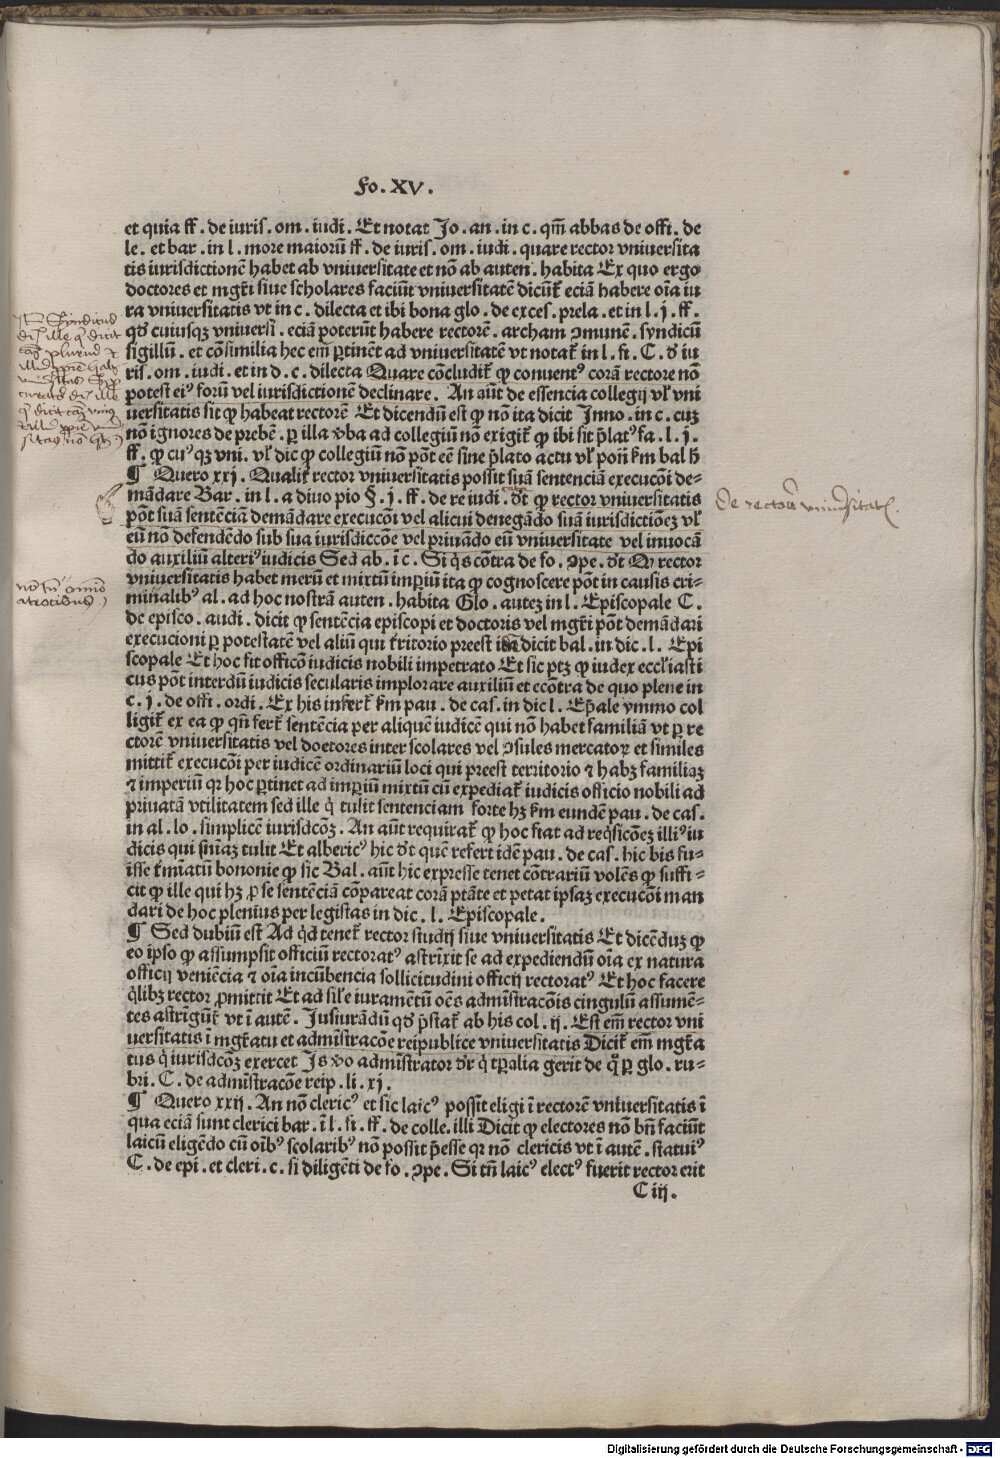 Fo. XV.
et quia ff. de iuris. om. iudi. Et notat Jo. an. in c. qm̄ abbas de offi. de
le. et bar. in l. more maioru̅ ff. de iuris. om. iudi. quare rector vniuersita
tis iurisdictionē habet ab vniuersitate et nō ab auten. habita Ex quo ergo
doctores et mgr̄i siue scholares faciūt vniuersitatē dicūt̄ eciā habere oīa iu
ra vniuersitatis vt in c. dilecta et ibi bona glo. de exces. prela. et in l. j. ff.
qd̄ cuiusqꝫ vniuersi. eciā poterūt habere rectorē. archam ꝯmunē. syndicū
sigillū. et cōsimilia hec em̄ ꝑtinēt ad vniuersitatē vt notat̄ in l. fi. C. d̄ iu
ris. om. iudi. et in d. c. dilecta Quare cōcludit̄ ꝙ conuentꝰ corā rectore nō
potest eiꝰ forū vel iurisdictionē declinare. An aūt de essencia collegij vl̄ vni
uersitatis sit ꝙ habeat rectorē Et dicendū est ꝙ nō ita dicit Inno. in c. cuꝫ
nō ignores de prebē. ꝑ illa v̄ba ad collegiū nō exigit̄ ꝙ ibi sit p̄latꝰ fa. l. j.
ff. ꝙ cuꝰ qꝫ vni. vl̄ dic ꝙ collegiū nō pōt eē sine p̄lato actu vl̄ pon̄i s̄m bal h̄
¶ Quero xxj. Qualit̄ rector vniuersitatis possit suā sentenciā execucōi de⸗
mādare Bar. in l. a diuo pio §. j. ff. de re iudi. dt̄ ꝙ rector vniuersitatis
pōt suā sentēciā demādare execucōi vel alicui denegādo suā iurisdictionēꝫ vl̄
eū nō defendēdo sub sua iurisdiccōe vel priuādo eū vniuersitate vel inuocā
do auxiliū alteriꝰ iudicis Sed ab. ī c. Si qs̄ cōtra de fo. ꝯpe. dt̄ Ꝙ rector
vniuersitatis habet merū et mixtū imꝑiū ita ꝙ cognoscere pōt in causis cri⸗
minalibꝰ al. ad hoc nostrā auten. habita Glo. auteꝫ in l. Episcopale C.
de episco. audi. dicit ꝙ sentēcia episcopi et doctoris vel mgr̄i pōt demādari
execucioni ꝑ potestatē vel aliū qui t̄ritorio preest dicit bal. in dic. l. Epi
scopale Et hoc fit officō iudicis nobili impetrato Et sic ptꝫ ꝙ iudex eccl̄iasti
cus pōt interdū iudicis secularis implorare auxiliū et ecōtra de quo plene in
c. j. de offi. ordi. Ex his infert̄ s̄m pau. de cas. in dic l. Ep̄ale ymmo col
ligit̄ ex ea ꝙ qn̄ fert̄ sentēcia per aliquē iudicē qui nō habet familiā vt ꝑ re
ctorē vniuersitatis vel doctores inter scolares vel ꝯsules mercatoꝝ et similes
mittit̄ execucōi per iudicē ordinariū loci qui preest territorio ⁊ habꝫ familiaꝫ
⁊ imperiū qꝛ hoc ꝑtinet ad imꝑiū mixtū cū expediat̄ iudicis officio nobili ad
priuatā vtilitatem sed ille q̇ tulit sentenciam forte hꝫ s̄m eundē pau. de cas.
in al. lo. simplicē iurisdcōꝫ. An aūt requirat̄ ꝙ hoc fiat ad reqsicōeꝫ illiꝰ iu
dicis qui sniaꝫ tulit Et albericꝰ hic dt̄ quē refert idē pau. de cas. hic bis fu⸗
isse t̄miatū bononie ꝙ sic Bal. aūt hic expresse tenet cōtrariū volēs ꝙ suffi⸗
cit ꝙ ille qui hꝫ ꝓ se sentēciā cōpareat corā ptāte et petat ipsaꝫ execucōi man
dari de hoc plenius per legistas in dic. l. Episcopale.
¶ Sed dubiū est Ad qd̄ tenet̄ rector studij siue vniuersitatis Et dicēduꝫ ꝙ
eo ipso ꝙ assumpsit officiū rectoratꝰ astrīxit se ad expediendū oīa ex natura
officij veniēcia ⁊ oīa incūbencia sollicitudini officij rectoratꝰ Et hoc facere
qlibꝫ rector ꝓmittit Et ad sil̄e iuramētū oēs admīstracōis cingulū assumē⸗
tes astrīgūt̄ vt ī autē. Jusiurādū qd̄ p̄stat̄ ab his col. ij. Est em̄ rector vni
uersitatis ī mgr̄atu et admīstracōe reipublice vniuersitatis Dicit̄ em̄ mgr̄a
tus q̇ iurisdcōꝫ exercet Js v̄o admīstrator dr̄ q̇ tꝑalia gerit de q̄ ꝑ glo. ru⸗
bri. C. de admīstracōe reip. li. xj.
¶ Quero xxij. An nō clericꝰ et sic laicꝰ possīt eligi ī rectorē vniuersitatis ī
qua eciā sunt clerici bar. ī l. fi. ff. de colle. illi Dicit ꝙ electores nō bn̄ faciūt
laicū eligēdo cū oībꝰ scolaribꝰ nō possit p̄esse qꝛ nō clericis vt ī autē. statuiꝰ
C. de epi. et cleri. c. si diligēti de fo. ꝯpe. Si tn̄ laicꝰ electꝰ fuerit rector erit
C iij.
De rectore vniuersitatis.
Digitalisierung gefördert durch die Deutsche Forschungsgemeinschaft - DFG